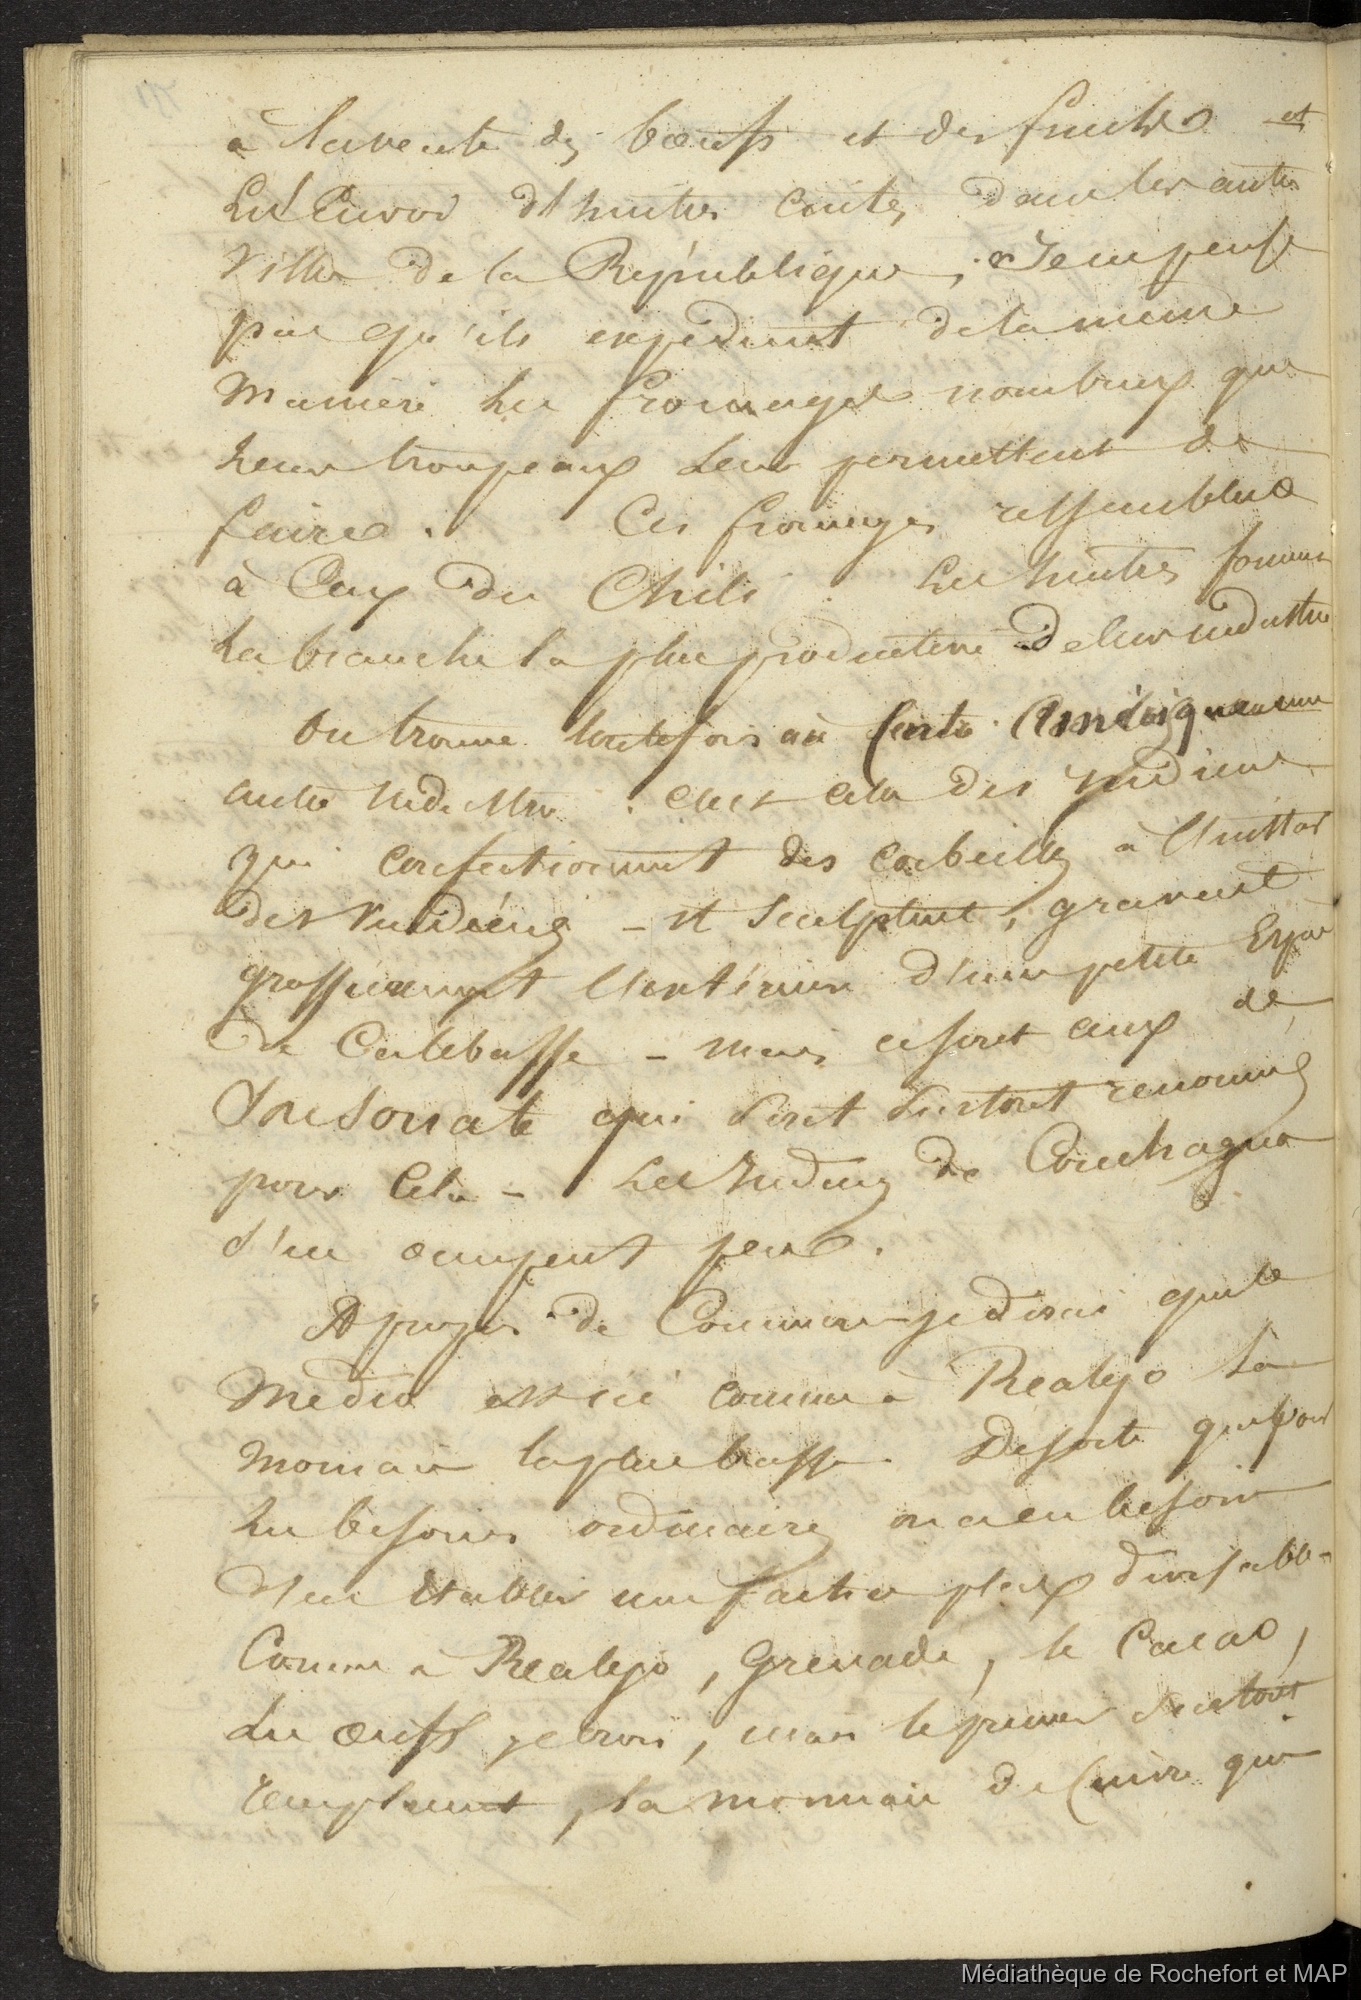 à la vente des bœufs et des fruits et
les envoi d'huitres cuites dans les autres
Villes de la République ; Je ne pense
pas qu'ils expedient de la même
Maniere les fromages nombreux que
leurs troupeaux leur permettent de
faire. Ces fromages ressemblent
à Ceux du Chili. Les huitres forment
la branche la plus productive de leur industrie
On trouve toutefois au
autre industrie. C'est celle des Indiens
qui confectionnent des corbeilles à l'instar
des Indiens - et sculptent, gravent
grossierement l'exterieur d'une petite Espèce
de Calebasse - mais ce sont ceux de
Sonsonate qui sont surtout renommés
pour Cela - Les Indiens de Conchagua
s'en occupent peu.
A propos de Commerce je dirai que le
Medio est ici comme à Realejo la
Monnaie la plus basse. De sorte que pour
les besoins ordinaires on a eu besoin
d'en etablir une factice plus divisible
Comme à Realejo, Grenade, le Cacao,
les œufs je crois, mais le premier surtout
remplacent, la monnaie de Cuivre que
Médiathèque de Rochefort et MAP